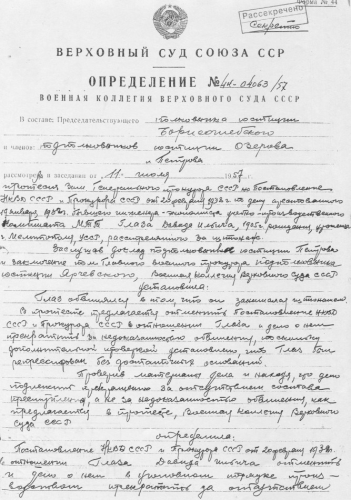 Форма № 44
Рассекречено
Секретно
ВЕРХОВНЫЙ СУД СОЮЗА ССР
ОПРЕДЕЛЕНИЕ № 4н-04063/57
ВОЕННАЯ КОЛЛЕГИЯ ВЕРХОВНОГО СУДА СССР
В составе: Председательствующего полковника юстиции
Борисоглебского
и членов: подполковников юстиции Озерова
и Петрова
рассмотрев в заседании от 11 июля 1957 г.
протест Генерального прокурора СССР на Постановление
НКВД СССР и Прокурора СССР от 20 февраля 1938 г. по делу арестованного
января 1938 г. бывшего инженера-экономиста
комбината Глаза Давида Ильича, 1905 г. рождения, уроженца
УССР, расстрелянного за шпионаж.
Заслушав доклад подполковника юстиции Петрова
и заключение Главного военного прокурора подполковника
юстиции Военная коллегия Верховного суда СССР
установила:
Глаз обвинялся в том, что он занимался шпионажем.
В протесте предлагается отменить Постановление НКВД
СССР и Прокурора СССР в отношении Глаза и дело о нем
прекратить за недоказанностью обвинения, поскольку
дополнительной проверкой установлено, что Глаз был
репрессирован без достаточных оснований.
Проверив материалы дела и находя, что дело
подлежит прекращению за отсутствием состава
преступления, а не за недоказанностью обвинения, как
предлагается в протесте, Военная коллегия Верховного
суда СССР
определила:
Постановление НКВД СССР и Прокурора СССР от 20 февраля 1938 г.
в отношении Глаза Давида Ильича отменить
и дело о нем в уголовном порядке произ-
водством прекратить за отсутствием